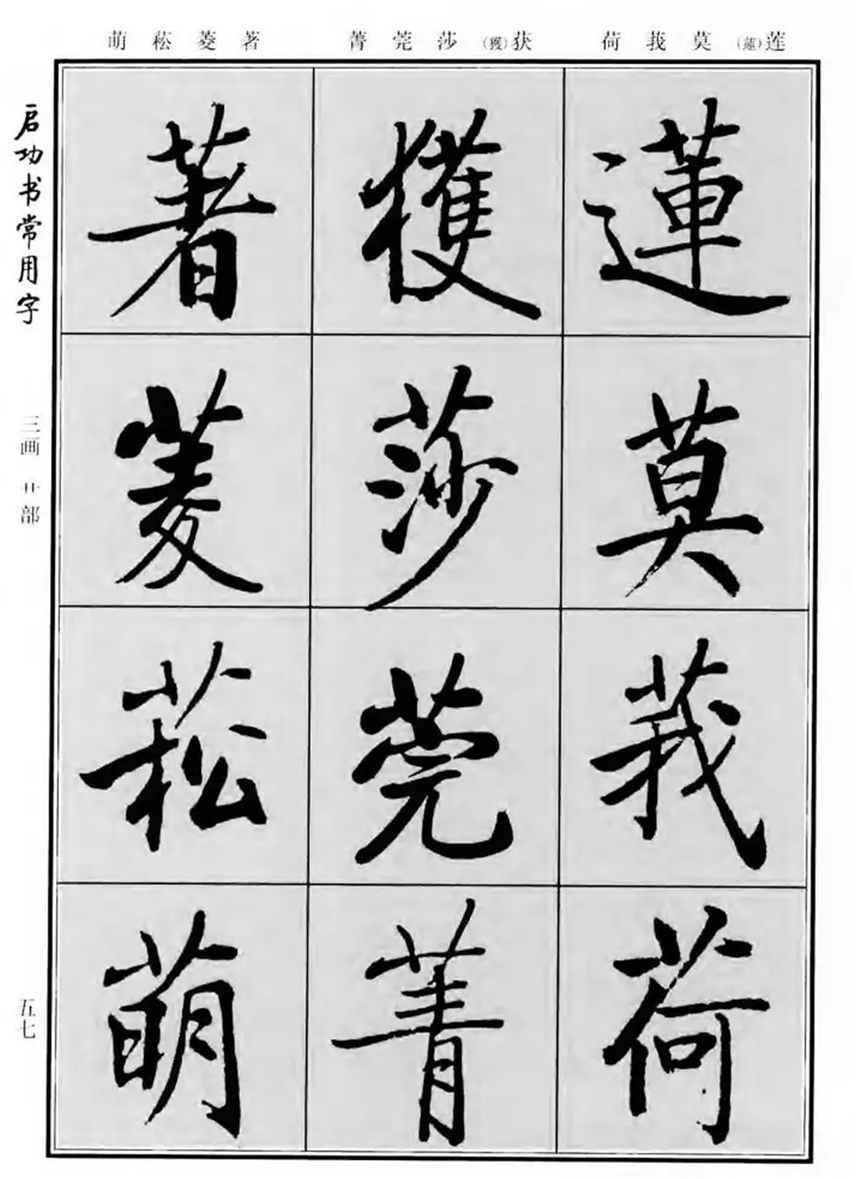 莲(蓮) 莫 莪 荷
获(獲) 莎 莞 菁
著 菱 菘 萌
蓮
莫
莪
荷
獲
莎
莞
菁
著
菱
菘
萌
启功书常用字
三画 艹部
五七